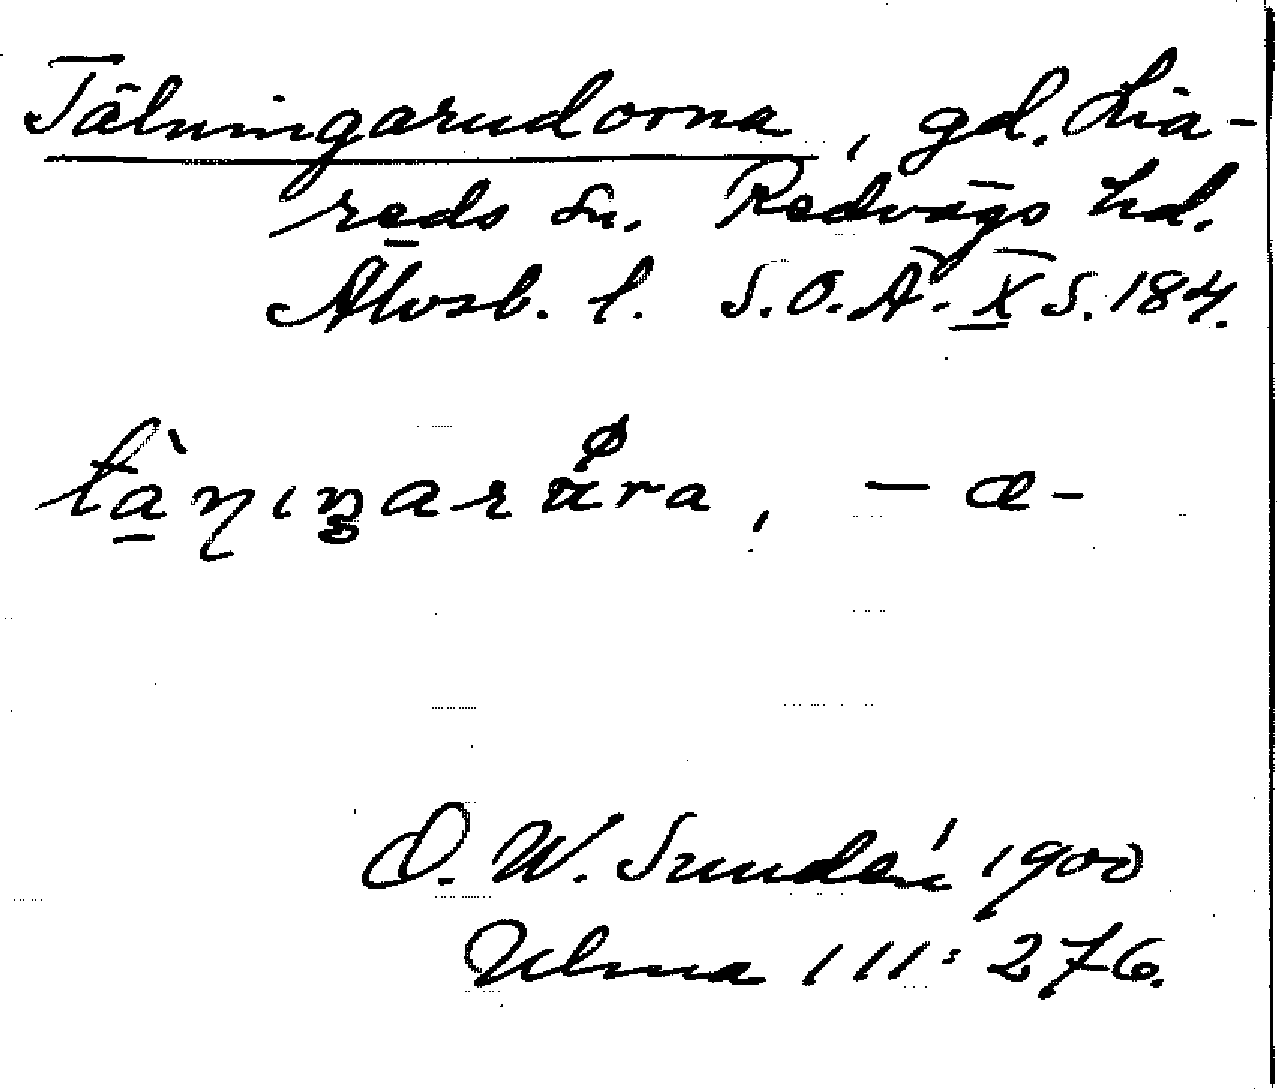 Tälningarudorna, gd. Lia-
reds sn. Redvägs hd.
Älvsb. l. S.O.Ä. X S. 184.
O. W. Sundén 1900
Ulma 111: 276.